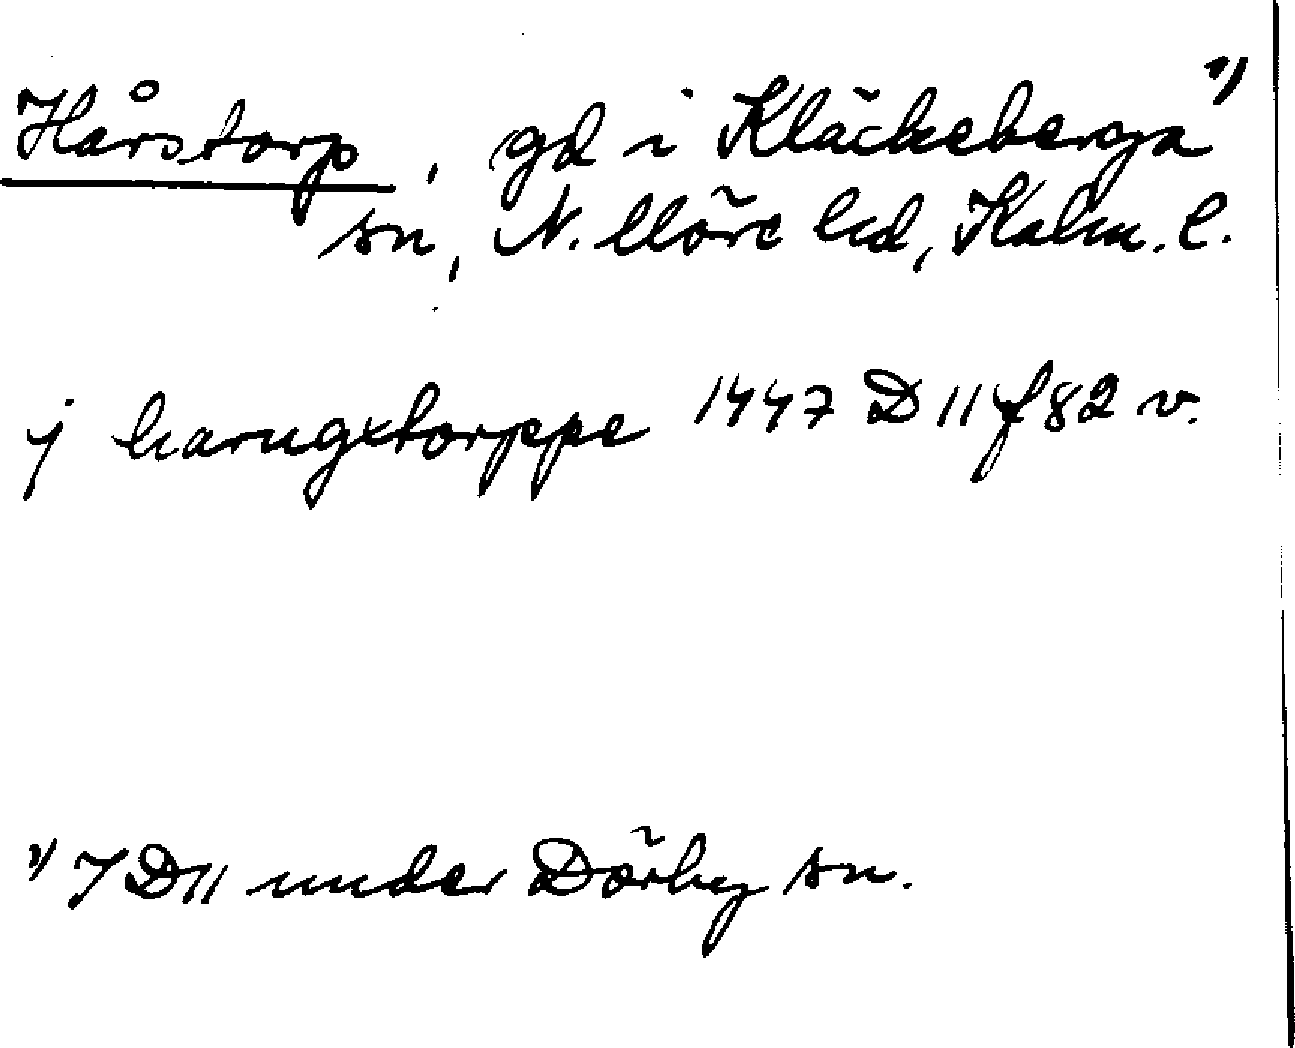 Hårstorp, gd i Kläckeberga 1)
sn, N. Möre hd, Kalm. l.
j harngxtorppe 1447 D 11 f 82 v.
1) I D 11 under Dörby sn.